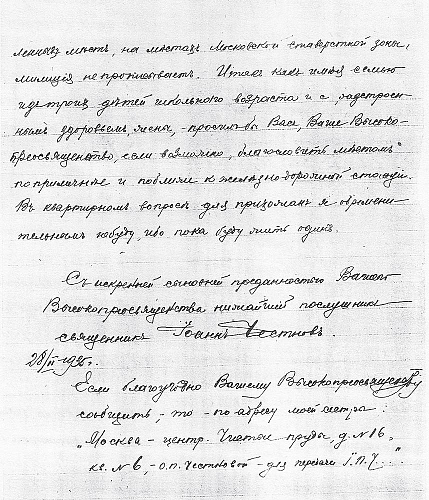 ленныхъ мѣстъ, на мѣстахъ Московской ставерстной зоны,
милиція не прописываетъ. И такъ какъ имѣя семью
и детроихъ дѣтей школьнаго возраста и с разстроен-
нымъ здоровьемъ жены, - просилъ бы Васъ, Ваше Высоко-
преосвященство, если возможно, благословить мѣстомъ
поприличнѣе и поближе к желѣзно-дорожной станціи.
Въ квартирномъ вопросѣ для прихожанъ я обремени-
тельнымъ не буду, ибо пока буду жить одинъ.
Съ искренней сыновней преданностью Вашего
Высокопреосвященства нижайшій послушникъ
священникъ Іоаннъ Честновъ.
28/II-1936 г.
Если благоугодно Вашему Высокопреосвященству
сообщить, - то - по адресу моей сестры:
"Москва - центр. Чистые пруды, д. № 16,
кв. № 6, - О.П. Честновой - для передачи І.П.Ч."